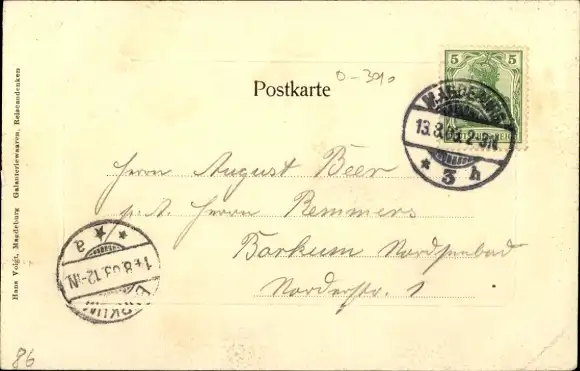 Postkarte
0-3910
5 5
MAGDEBURG
13.8.03.2-3N.
* 3 h
Herrn August Beer
p. A. Herrn Remmers
Borkum Nordseebad
Norderstr. 1
* * a
14.8.03.12-1N.
BORKUM
Hans Voigt, Magdeburg Galanteriewaaren, Reiseandenken
86